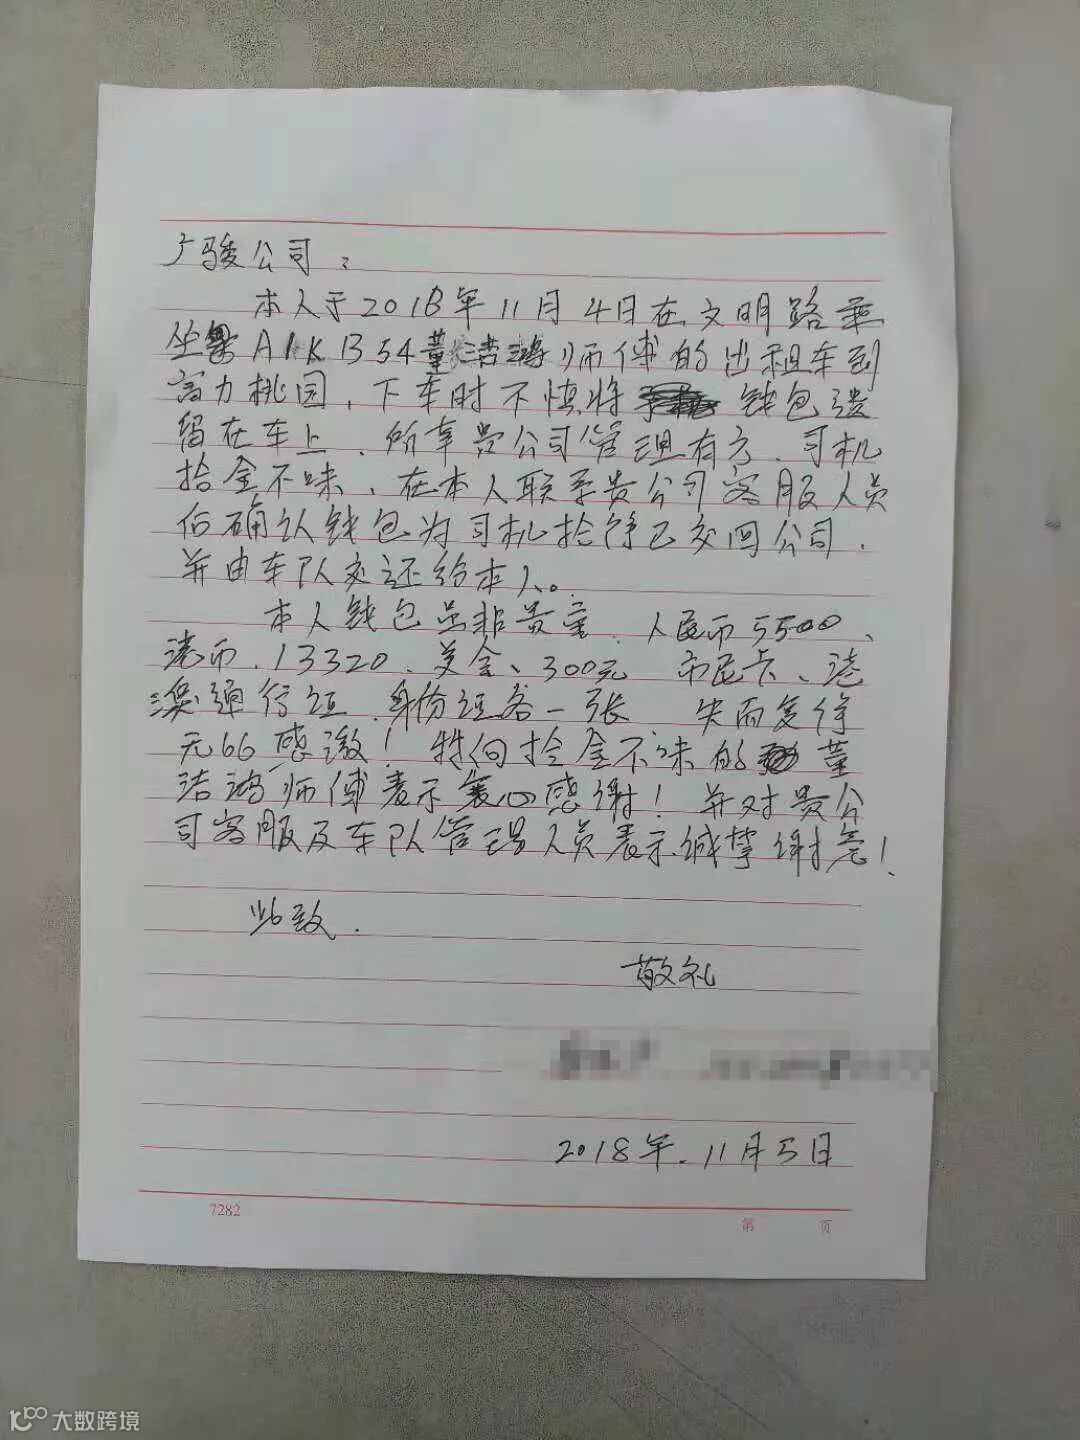 广骏公司：
本人于2018年11月4日在文明路乘
坐粤A1KB54董洁鸿师傅的出租车到
富力桃园，下车时不慎将钱包遗
留在车上，所幸贵公司管理有方，司机
拾金不昧，在本人联系贵公司客服人员
后确认钱包为司机拾得已交回公司，
并由车队交还给本人。
本人钱包虽非贵重，人民币5500、
港币、13320、美金、300元 市民卡、港
澳通行证，身份证各一张 失而复得
无比感激！特向拾金不昧的董
洁鸿师傅表示衷心感谢！并对贵公
司客服及车队管理人员表示诚挚谢意！
此致，
敬礼
2018年，11月5日
7282
第 页
大数跨境